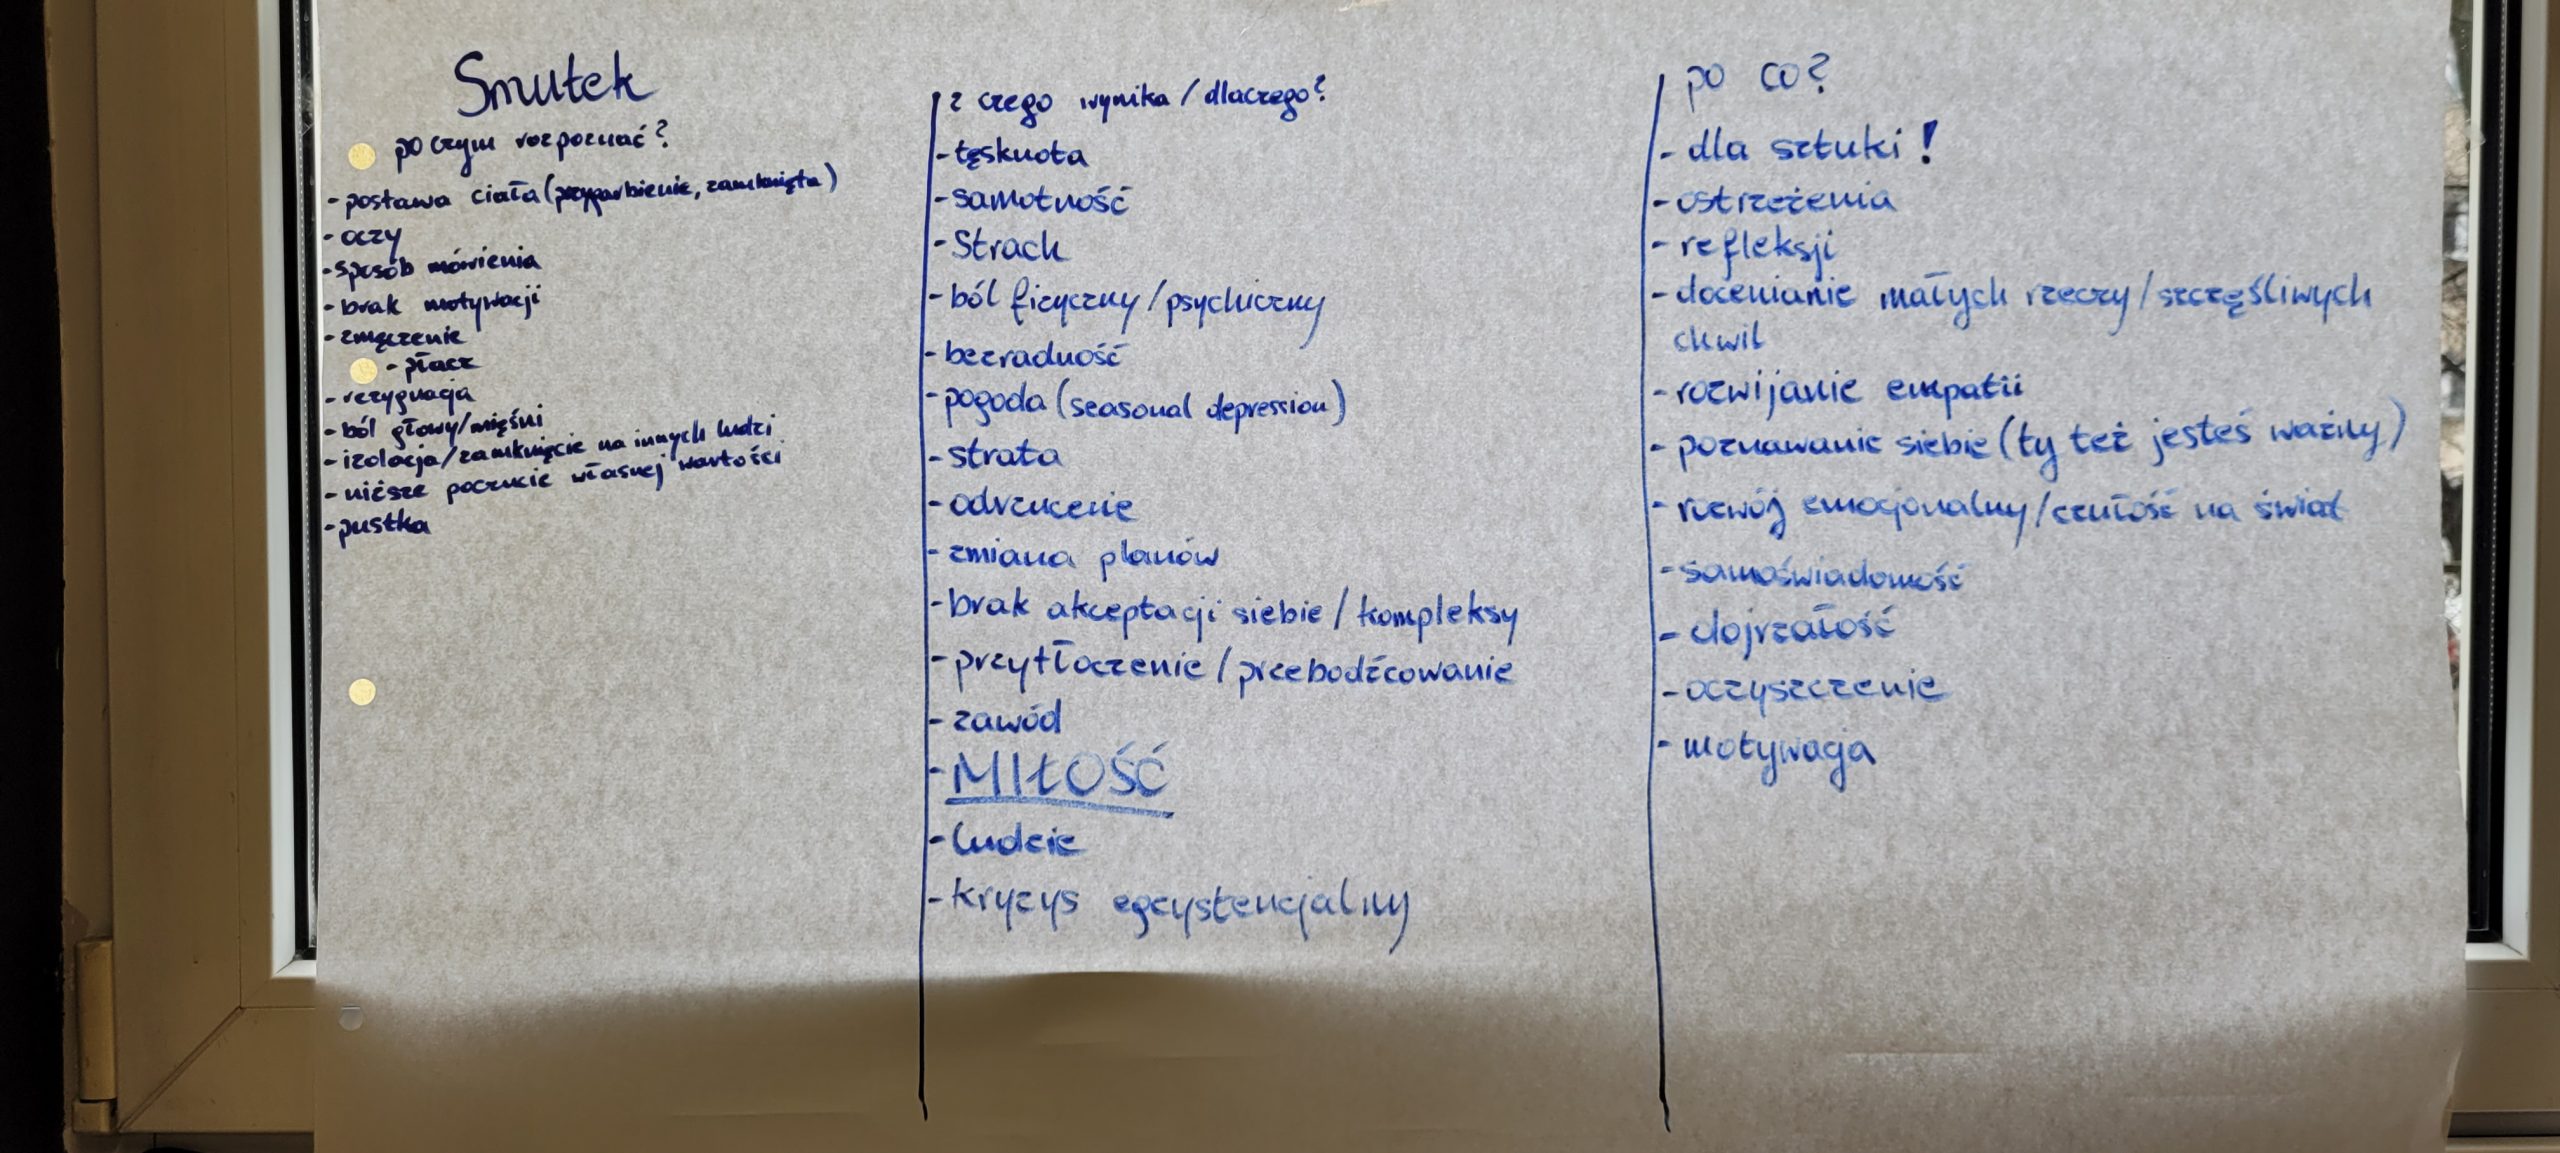 Smutek
po czym rozpoznać?
- postawa ciała (przygarbienie, zamknięta)
- oczy
- sposób mówienia
- brak motywacji
- zmęczenie
- płacz
- rezygnacja
- ból głowy/mięśni
- izolacja/zamknięcie na innych ludzi
- niższe poczucie własnej wartości
- pustka
z czego wynika / dlaczego?
- tęsknota
- samotność
- Strach
- ból fizyczny/psychiczny
- bezradność
- pogoda (seasonal depression)
- strata
- odrzucenie
- zmiana planów
- brak akceptacji siebie / kompleksy
- przytłoczenie / przebodźcowanie
- zawód
- MIŁOŚĆ
- ludzie
- kryzys egzystencjalny
po co?
- dla sztuki!
- ostrzeżenia
- refleksji
- docenianie małych rzeczy/szczęśliwych
chwil
- rozwijanie empatii
- poznawanie siebie (ty też jesteś ważny)
- rozwój emocjonalny/czułość na świat
- samoświadomość
- dojrzałość
- oczyszczenie
- motywacja